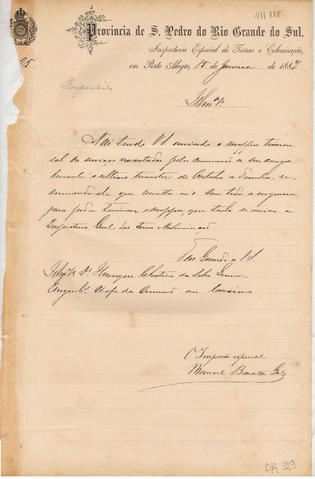 411 888
Provincia de S. Pedro do Rio Grande do Sul.
Inspetoria Especial de Terras e Colonisação,
em Porto Alegre, 15 de Janeiro de 188
Respondido
Illmo Sr.
Não tendo VS enviado o mappa
dos serviços executados pela commissão a seu cargo
durante o ultimo trimestre de Outubro a Dezembro,
que com toda a urgencia
para poder terminar o mappa, que tenho de enviar a
Inspectoria Geral das Terras e Colonisação
Deos Guarde a VS
Illmo Sr Dr Henrique Christino da Silva
Engenheiro Chefe da Commissão
O Inspector especial
Manoel Barata Góes
DIR 323